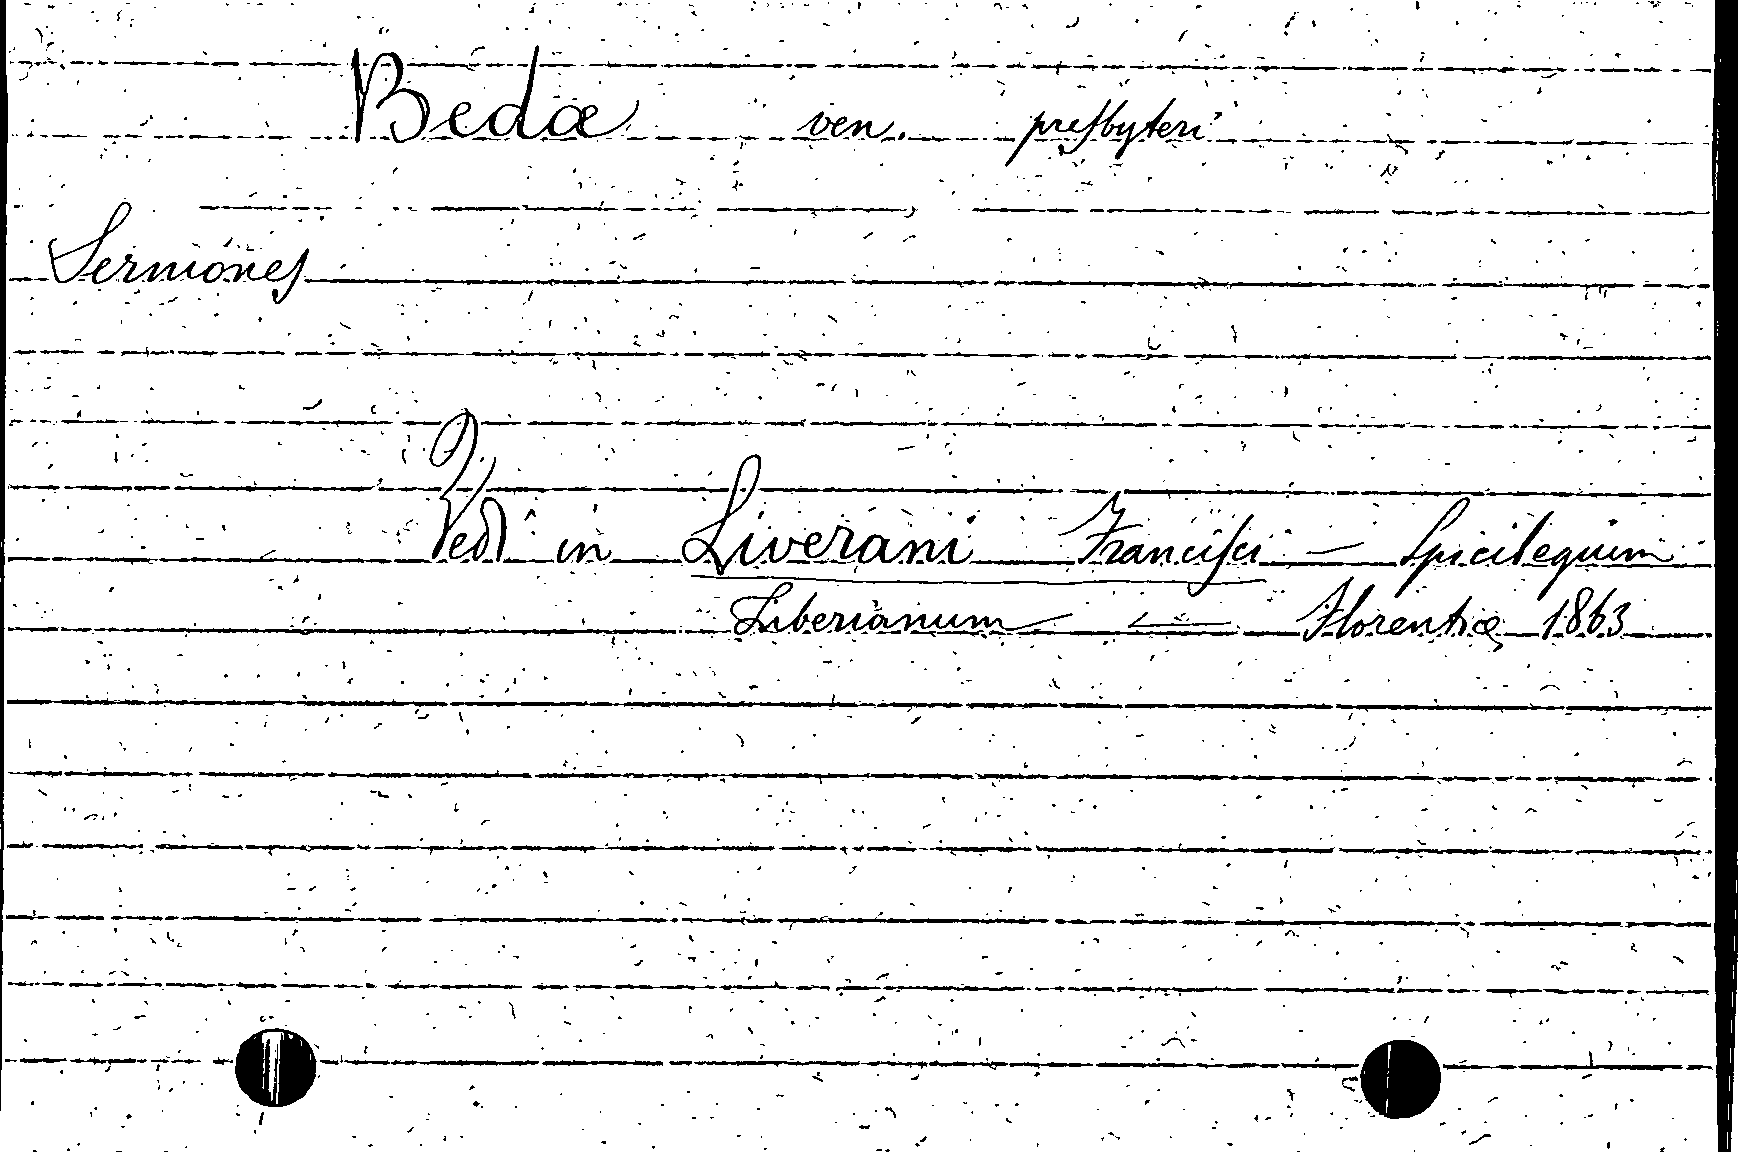 Bedæ ven. presbyteri
Sermones
Vedi in Liverani Francisci — Spicilegium
Liberianum — Florentiæ 1863